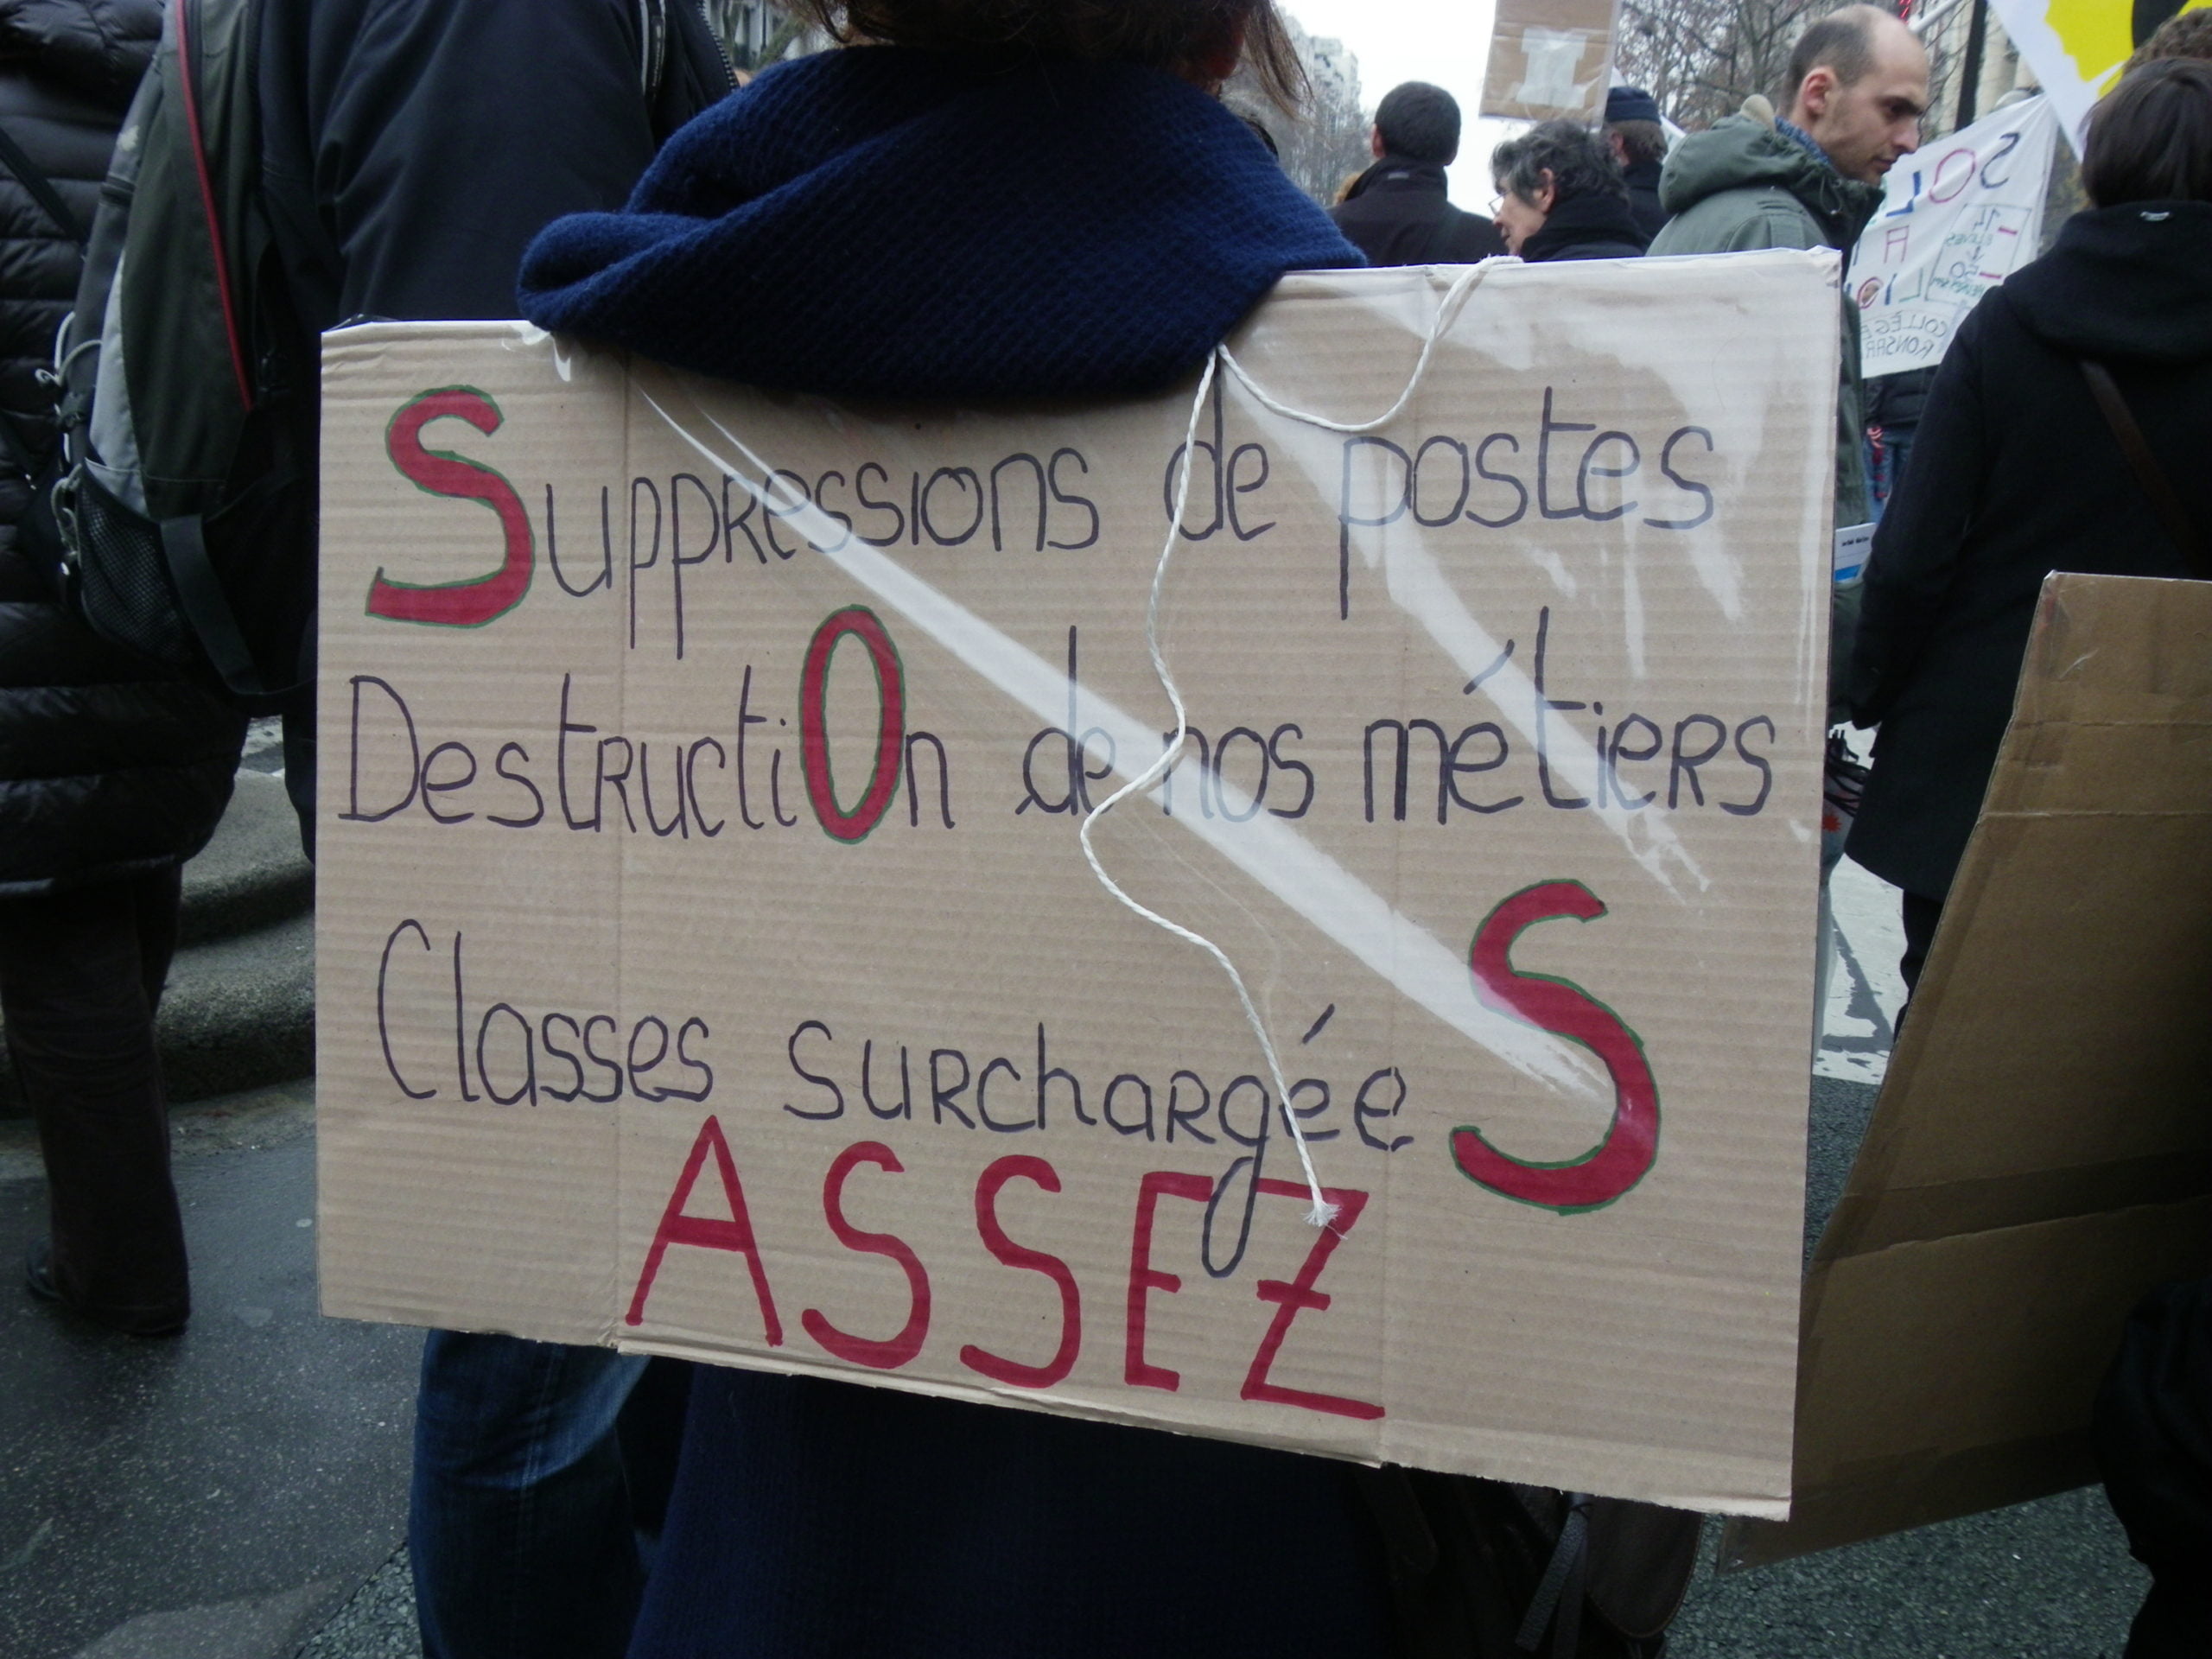 Suppressions de postes
DestructiOn de nos métiers
Classes surchargéeS
ASSEZ
SOLA
14
COLLÈGE
RONSAR